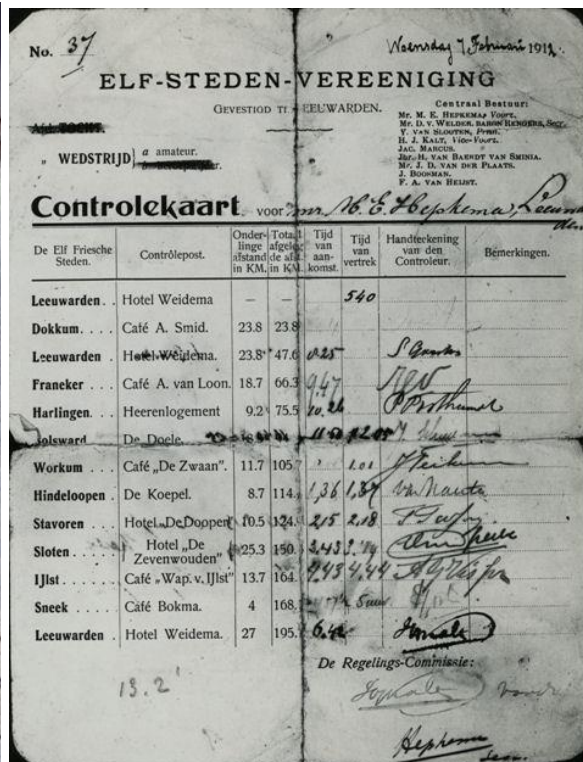 No. 37
Woensdag 7 Februari 1912.
ELF-STEDEN-VEREENIGING
GEVESTIGD TE LEEUWARDEN.
Centraal Bestuur:
Mr. M. E. HEPKEMA, Voorz.
Mr. D. V. WELDEREN BARON RENGERS, Secr.
Y. VAN SLOOTEN, Penn.
H. J. KALT, Vice-Voorz.
JAC. MARCUS.
Jhr. H. VAN BAERDT VAN SMINIA.
Mr. J. D. VAN DER PLAATS.
J. BOOSMAN.
F. A. VAN HEIJST.
Afd. TOCHT.
„ WEDSTRIJD) a amateur.
Controlekaart voor mr. M. E. Hepkema, Leeuwarden
De Elf Friesche Steden. Contrôlepost. Onderlinge afstand in KM. Totaal afgelegde afst. in KM. Tijd van aankomst. Tijd van vertrek Handteekening van den Controleur. Bemerkingen.
Leeuwarden. . Hotel Weidema — — 540
Dokkum. . . . Café A. Smid. 23.8 23.8
Leeuwarden . Hotel Weidema. 23.8 47.6 8.25
Franeker . . . Café A. van Loon. 18.7 66.3 9.47
Harlingen. . . Heerenlogement 9.2 75.5 10.26
Bolsward De Doele. 12.05
Workum . . . Café „De Zwaan". 11.7 105. 1.01
Hindeloopen . De Koepel. 8.7 114. 1,36 1,37
Stavoren . . . . Hotel „De Doopen" 10.5 124. 2.15 2,18
Sloten . . . . . Hotel „De Zevenwouden" 25.3 150. 3.43
IJlst . . . . . . Café „Wap. v. IJlst" 13.7 164. 4.44
Sneek . . . . Café Bokma. 4 168.
Leeuwarden . Hotel Weidema. 27 195. 6.42
De Regelings-Commissie:
13.2
Hepkema